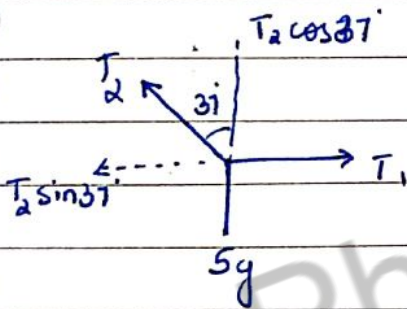 T₂ cos37°
T₂
37°
T₁
T₂ sin37°
5g
Ph